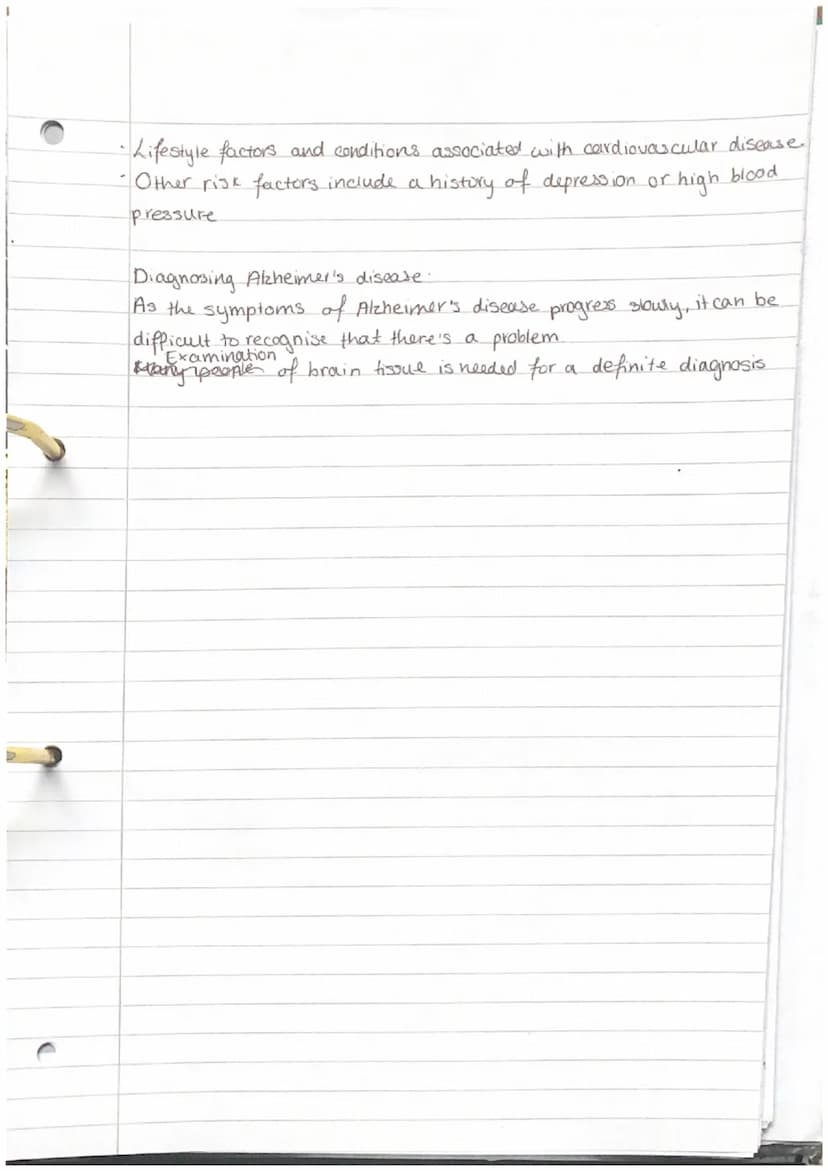 · Lifestyle factors and conditions associated with cardiovascular disease.
· Other risk factors include a history of depression or high blood
pressure
Diagnosing Alzheimer's disease:
As the symptoms of Alzheimer's disease progress slowly, it can be
difficult to recognise that there's a problem.
Examination
Many people of brain tissue is needed for a definite diagnosis